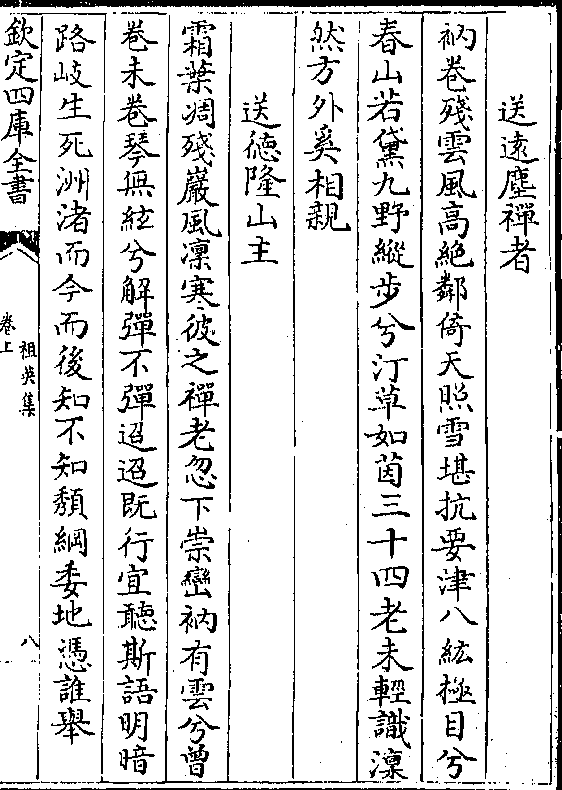 送遠塵禪者
衲卷殘雲風高絶鄰倚天照雪堪抗要津八紘極目兮
春山若黛九野縱步兮汀草如茵三十四老未輕識凜
然方外奚相親
送德隆山主
霜葉凋殘巖風凜寒彼之禪老忽下崇巒衲有雲兮曾
卷未卷琴無絃兮解彈不彈迢迢既行宜聽斯語明暗
路岐生死洲渚而今而後知不知頽綱委地憑誰舉
欽定四庫全書
祖英集
卷上
八